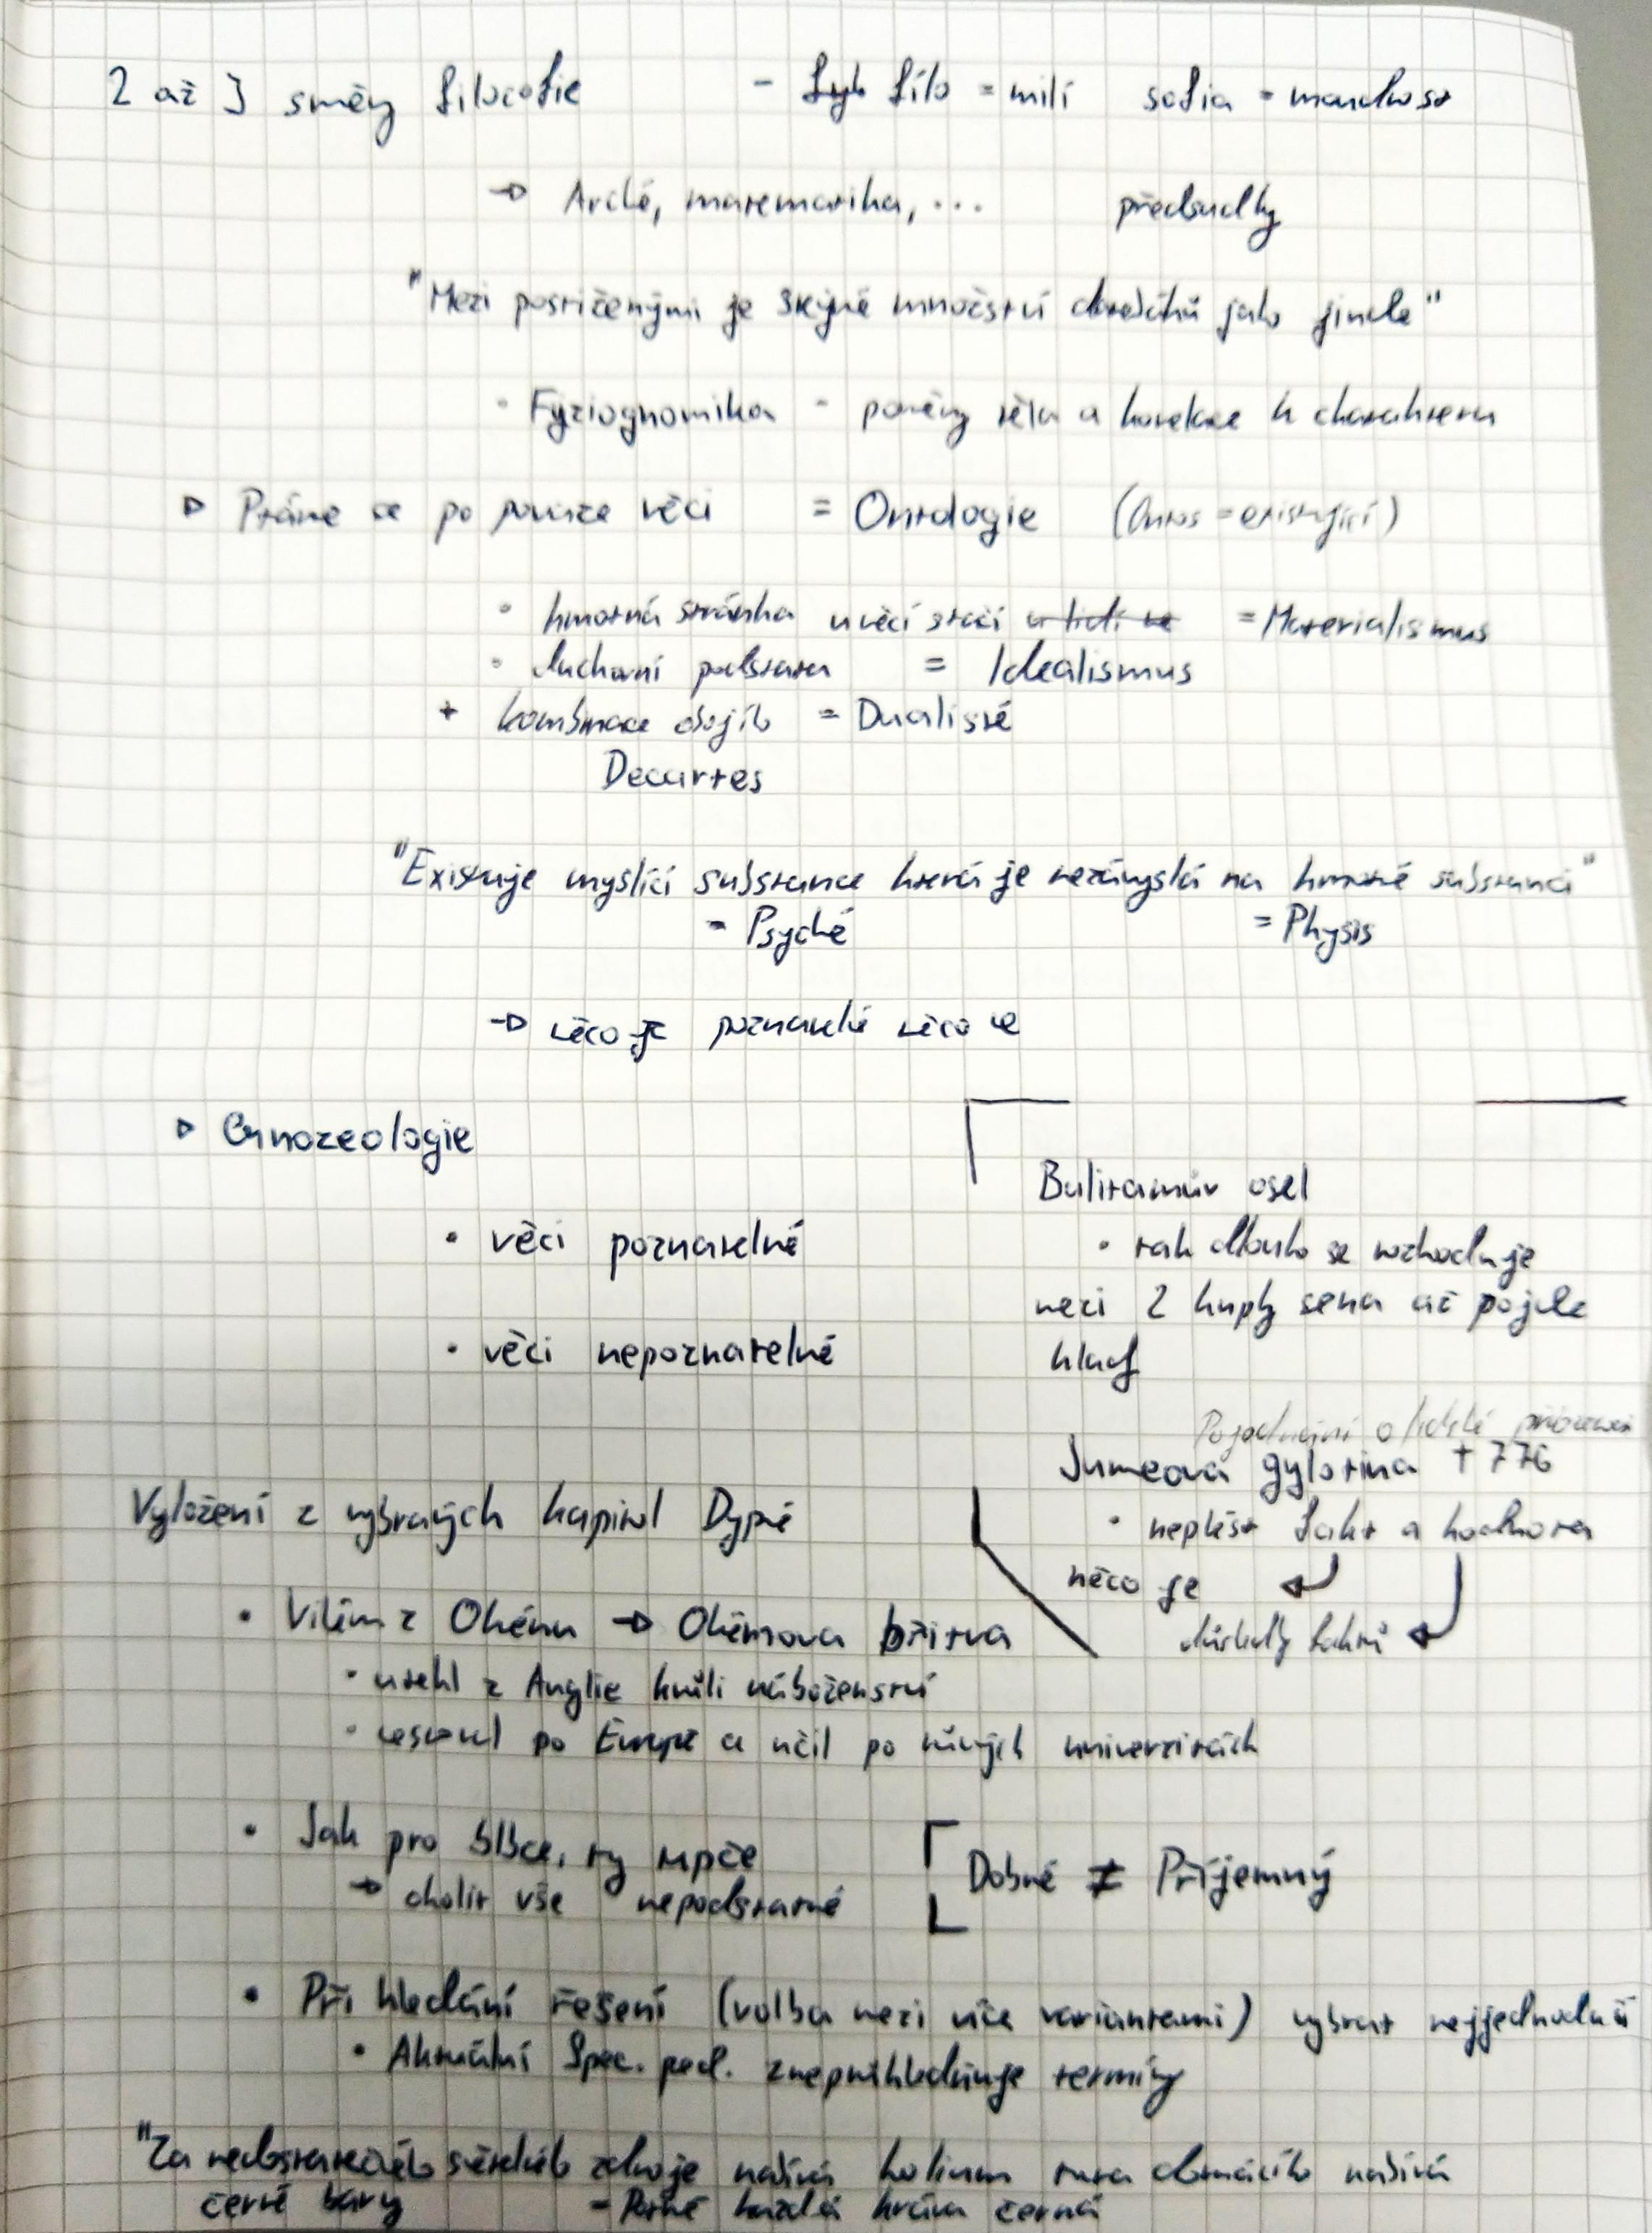 2 až 3 směry filosofie - Fyl Filo = milí sofia = moudrost
→ Arché, matematika, ... předsudky
"Mezi postiženými je stejné množství darebáků jako jinde"
• Fyziognomika - poměry těla a korelace k charakteru
▷ Ptáme se po povaze věci = Ontologie (Ontos = existující)
• hmotná stránka u věcí stačí u lidí ne = Materialismus
• duchovní podstata = Idealismus
+ kombinace obojího = Dualisté
Decartes
"Existuje myslící substance která je nezávyslá na hmotné substanci"
= Psyché = Physis
→ něco je poznatelné něco ne
▷ Gnozeologie
• věci poznatelné
• věci nepoznatelné
Buliramův osel
• tak dlouho se rozhoduje
mezi 2 kupky sena až pojde
hlady
Pojednání o lidské přirozenosti
Jumeová gylotina †776
• neplést fakt a hodnota
něco je
důsledky faktů
Vyložení z vybraných kapitol
• Vilém z Okénu → Okémova břitva
• utekl z Anglie kvůli náboženství
• cestoval po Evropě a učil po různých univerzitách
• Jak pro blbce, ty
→ oholit vše nepodstatné
Dobré ≠ Příjemný
• Při hledání řešení (volba mezi více variantami) vybrat nejjednodušší
• Aktuální Spec. ped. znepřehledňuje termíny
"Za nedostatečného světelného zdroje nabývá domácího
černé barvy - Potmě každá kráva černá